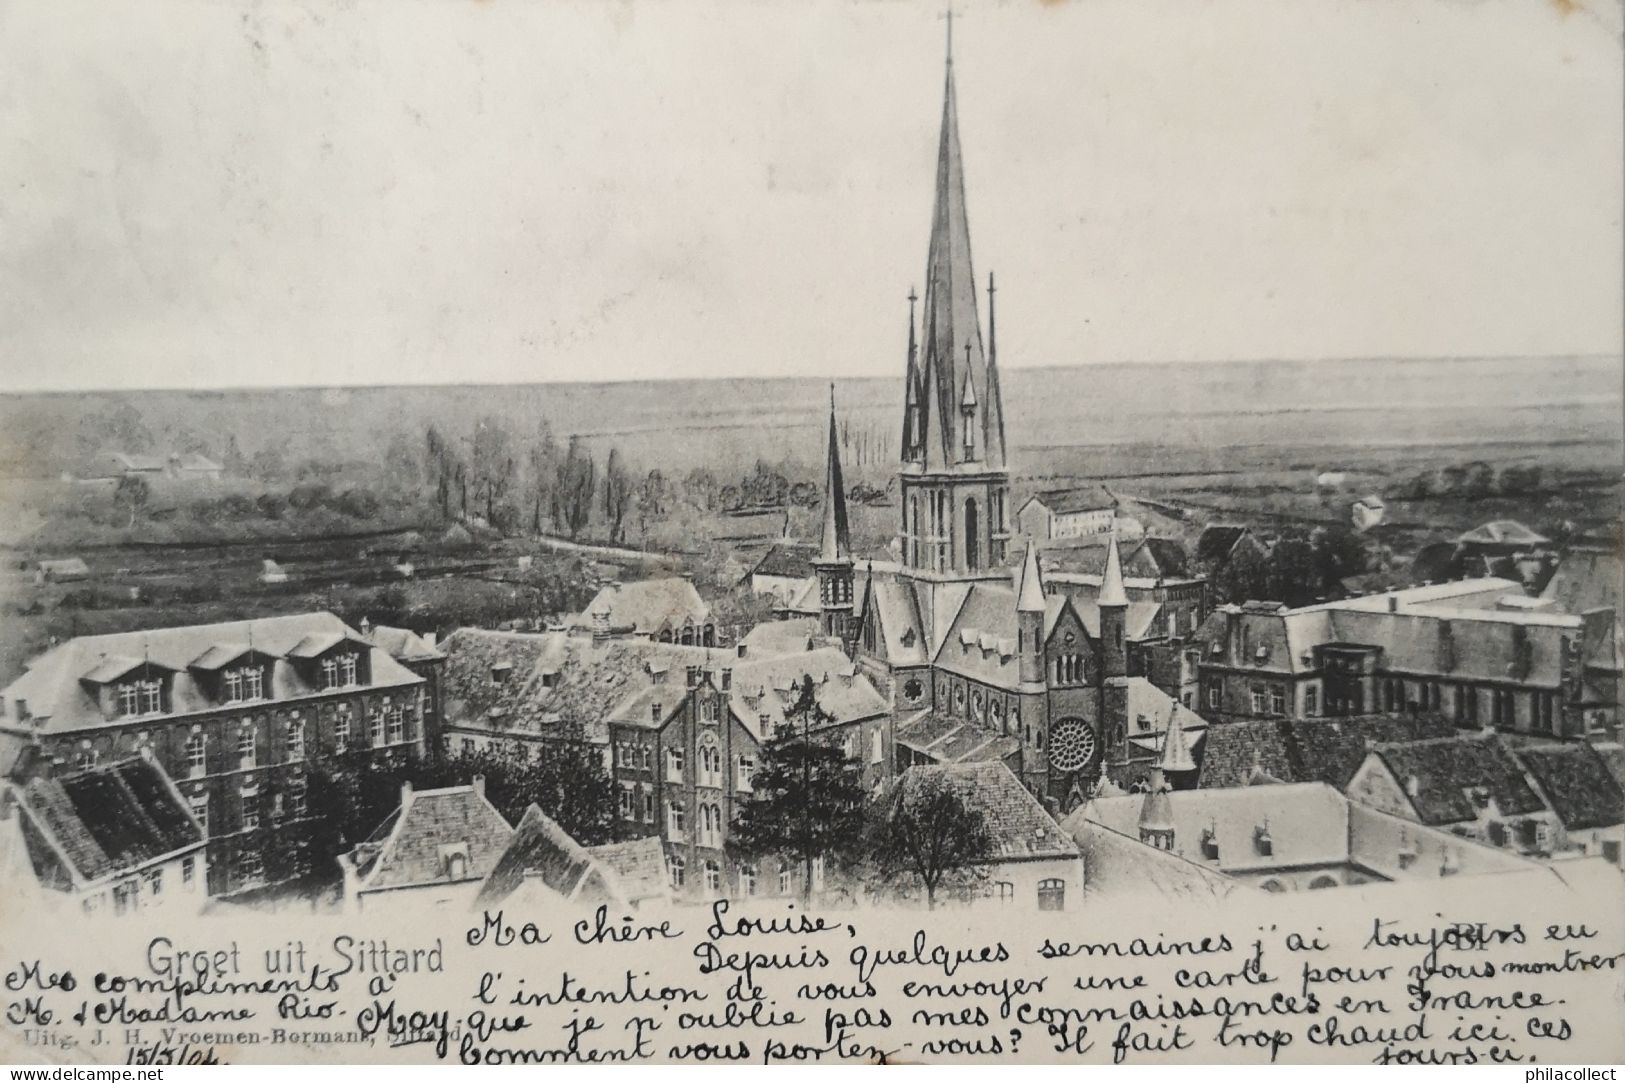 Groet uit Sittard
Ma chère Louise,
Depuis quelques semaines j'ai toujours eu
l'intention de vous envoyer une carte pour vous montrer
que je n'oublie pas mes connaissances en France.
Comment vous portez-vous? Il fait trop chaud ici ces
jours-ci.
Mes compliments à
M. & Madame Rio.
May
Uitg. J. H. Vroemen-Bormans, Sittard
15/5/04.
philacollect